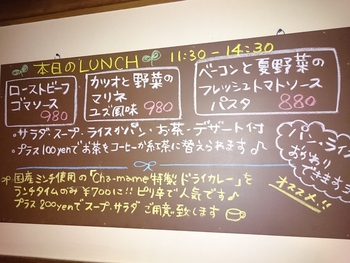 本日のLUNCH 11:30-14:30
ローストビーフ
ゴマソース
980
カツオと野菜の
マリネ
ユズ風味 980
ベーコンと夏野菜の
フレッシュトマトソース
パスタ 880
・サラダ・スープ・ライスかパン・お茶・デザート付
・プラス100yenでお茶をコーヒーか紅茶に替えられます♪
パン・ライス
おかわり
できます
オススメ!!
国産ミンチ使用の「Cha-mame特製ドライカレー」を
ランチタイムのみ¥700に!!ピリ辛で人気です♪
プラス200yenでスープ・サラダ ご用意致します